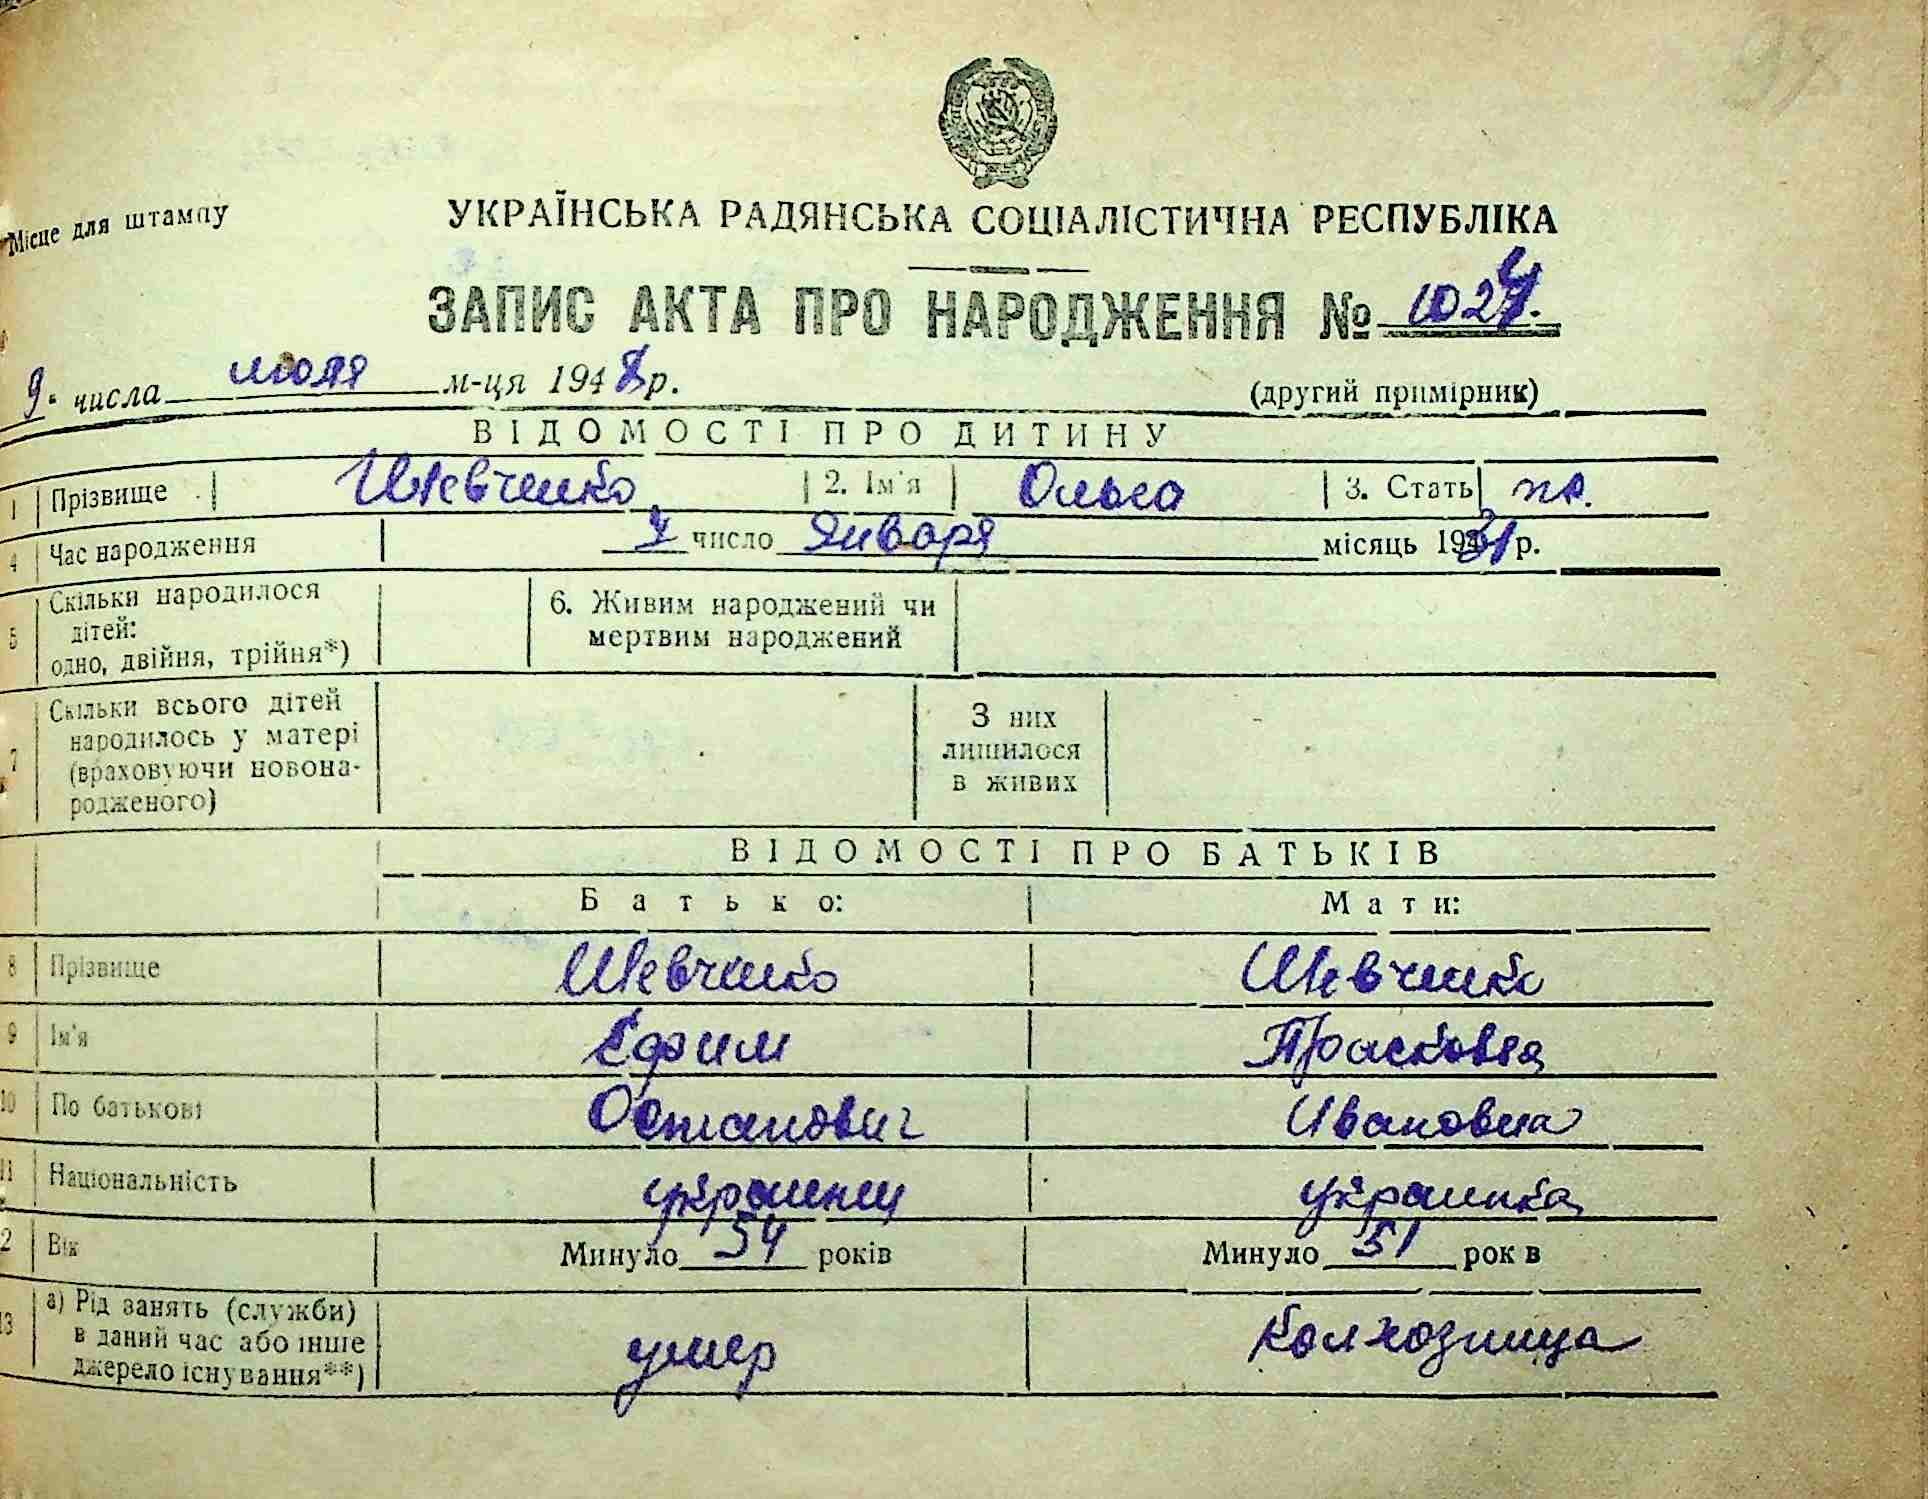 98
Місце для штампу
УКРАЇНСЬКА РАДЯНСЬКА СОЦІАЛІСТИЧНА РЕСПУБЛІКА
ЗАПИС АКТА ПРО НАРОДЖЕННЯ № 1024.
9. числа июля м-ця 1948 р.
(другий примірник)
ВІДОМОСТІ ПРО ДИТИНУ
1 Прізвище Шевченко 2. Ім'я Ольга 3. Стать
4 Час народження число Января місяць 1931 р.
5 Скільки народилося дітей: одно, двійня, трійня*) 6. Живим народжений чи мертвим народжений
7 Скільки всього дітей народилось у матері (враховуючи новонародженого) З них лишилося в живих
ВІДОМОСТІ ПРО БАТЬКІВ
Батько: Мати:
8 Прізвище Шевченко Шевченко
9 Ім'я Ефим Прасковья
10 По батькові Остапович Ивановна
11 Національність украинец украинка
12 Вік Минуло 54 років Минуло 51 рок в
13 а) Рід занять (служби) в даний час або інше джерело існування**) умер колхозница